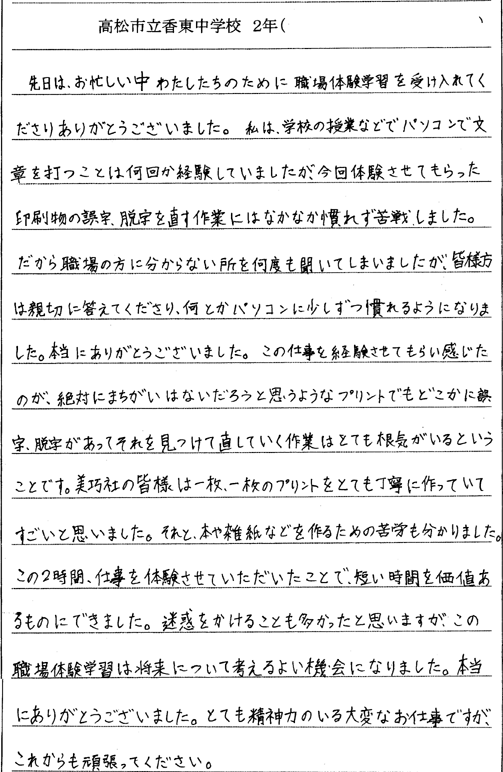 高松市立香東中学校 2年(
先日は、お忙しい中わたしたちのために職場体験学習を受け入れてく
ださりありがとうございました。私は、学校の授業などでパソコンで文
章を打つことは何回か経験していましたが、今回体験させてもらった
印刷物の誤字、脱字を直す作業にはなかなか慣れず苦戦しました。
だから職場の方に分からない所を何度も聞いてしまいましたが、皆様方
は親切に答えてくださり、何とかパソコンに少しずつ慣れるようになりま
した。本当にありがとうございました。この仕事を経験させてもらい感じた
のが、絶対にまちがいはないだろうと思うようなプリントでもどこかに誤
字、脱字があってそれを見つけて直していく作業はとても根気がいるという
ことです。美巧社の皆様は一枚、一枚のプリントをとても丁寧に作っていて
すごいと思いました。それと、本や雑紙などを作るための苦労も分かりました。
この2時間、仕事を体験させていただいたことで、短い時間を価値あ
るものにできました。迷惑をかけることも多かったと思いますが、この
職場体験学習は将来について考えるよい機会になりました。本当
にありがとうございました。とても精神力のいる大変なお仕事ですが、
これからも頑張ってください。